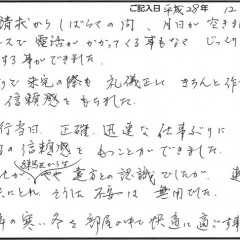 ご記入日 平成28年 12
請求からしばらくの間、月日が空き
スで電話がかかってくる事もなく じっくり
する事ができました。
で来宅の際も 礼儀正しく きちんと作
信頼感をもちました。
行当日、正確、迅速な仕事ぶりに
の信頼感をもつことができました。
たが やや 遠方との認識でしたが、
にとれ そうした不安は無用でした。
の寒い冬を部屋の中で快適に過ごす事